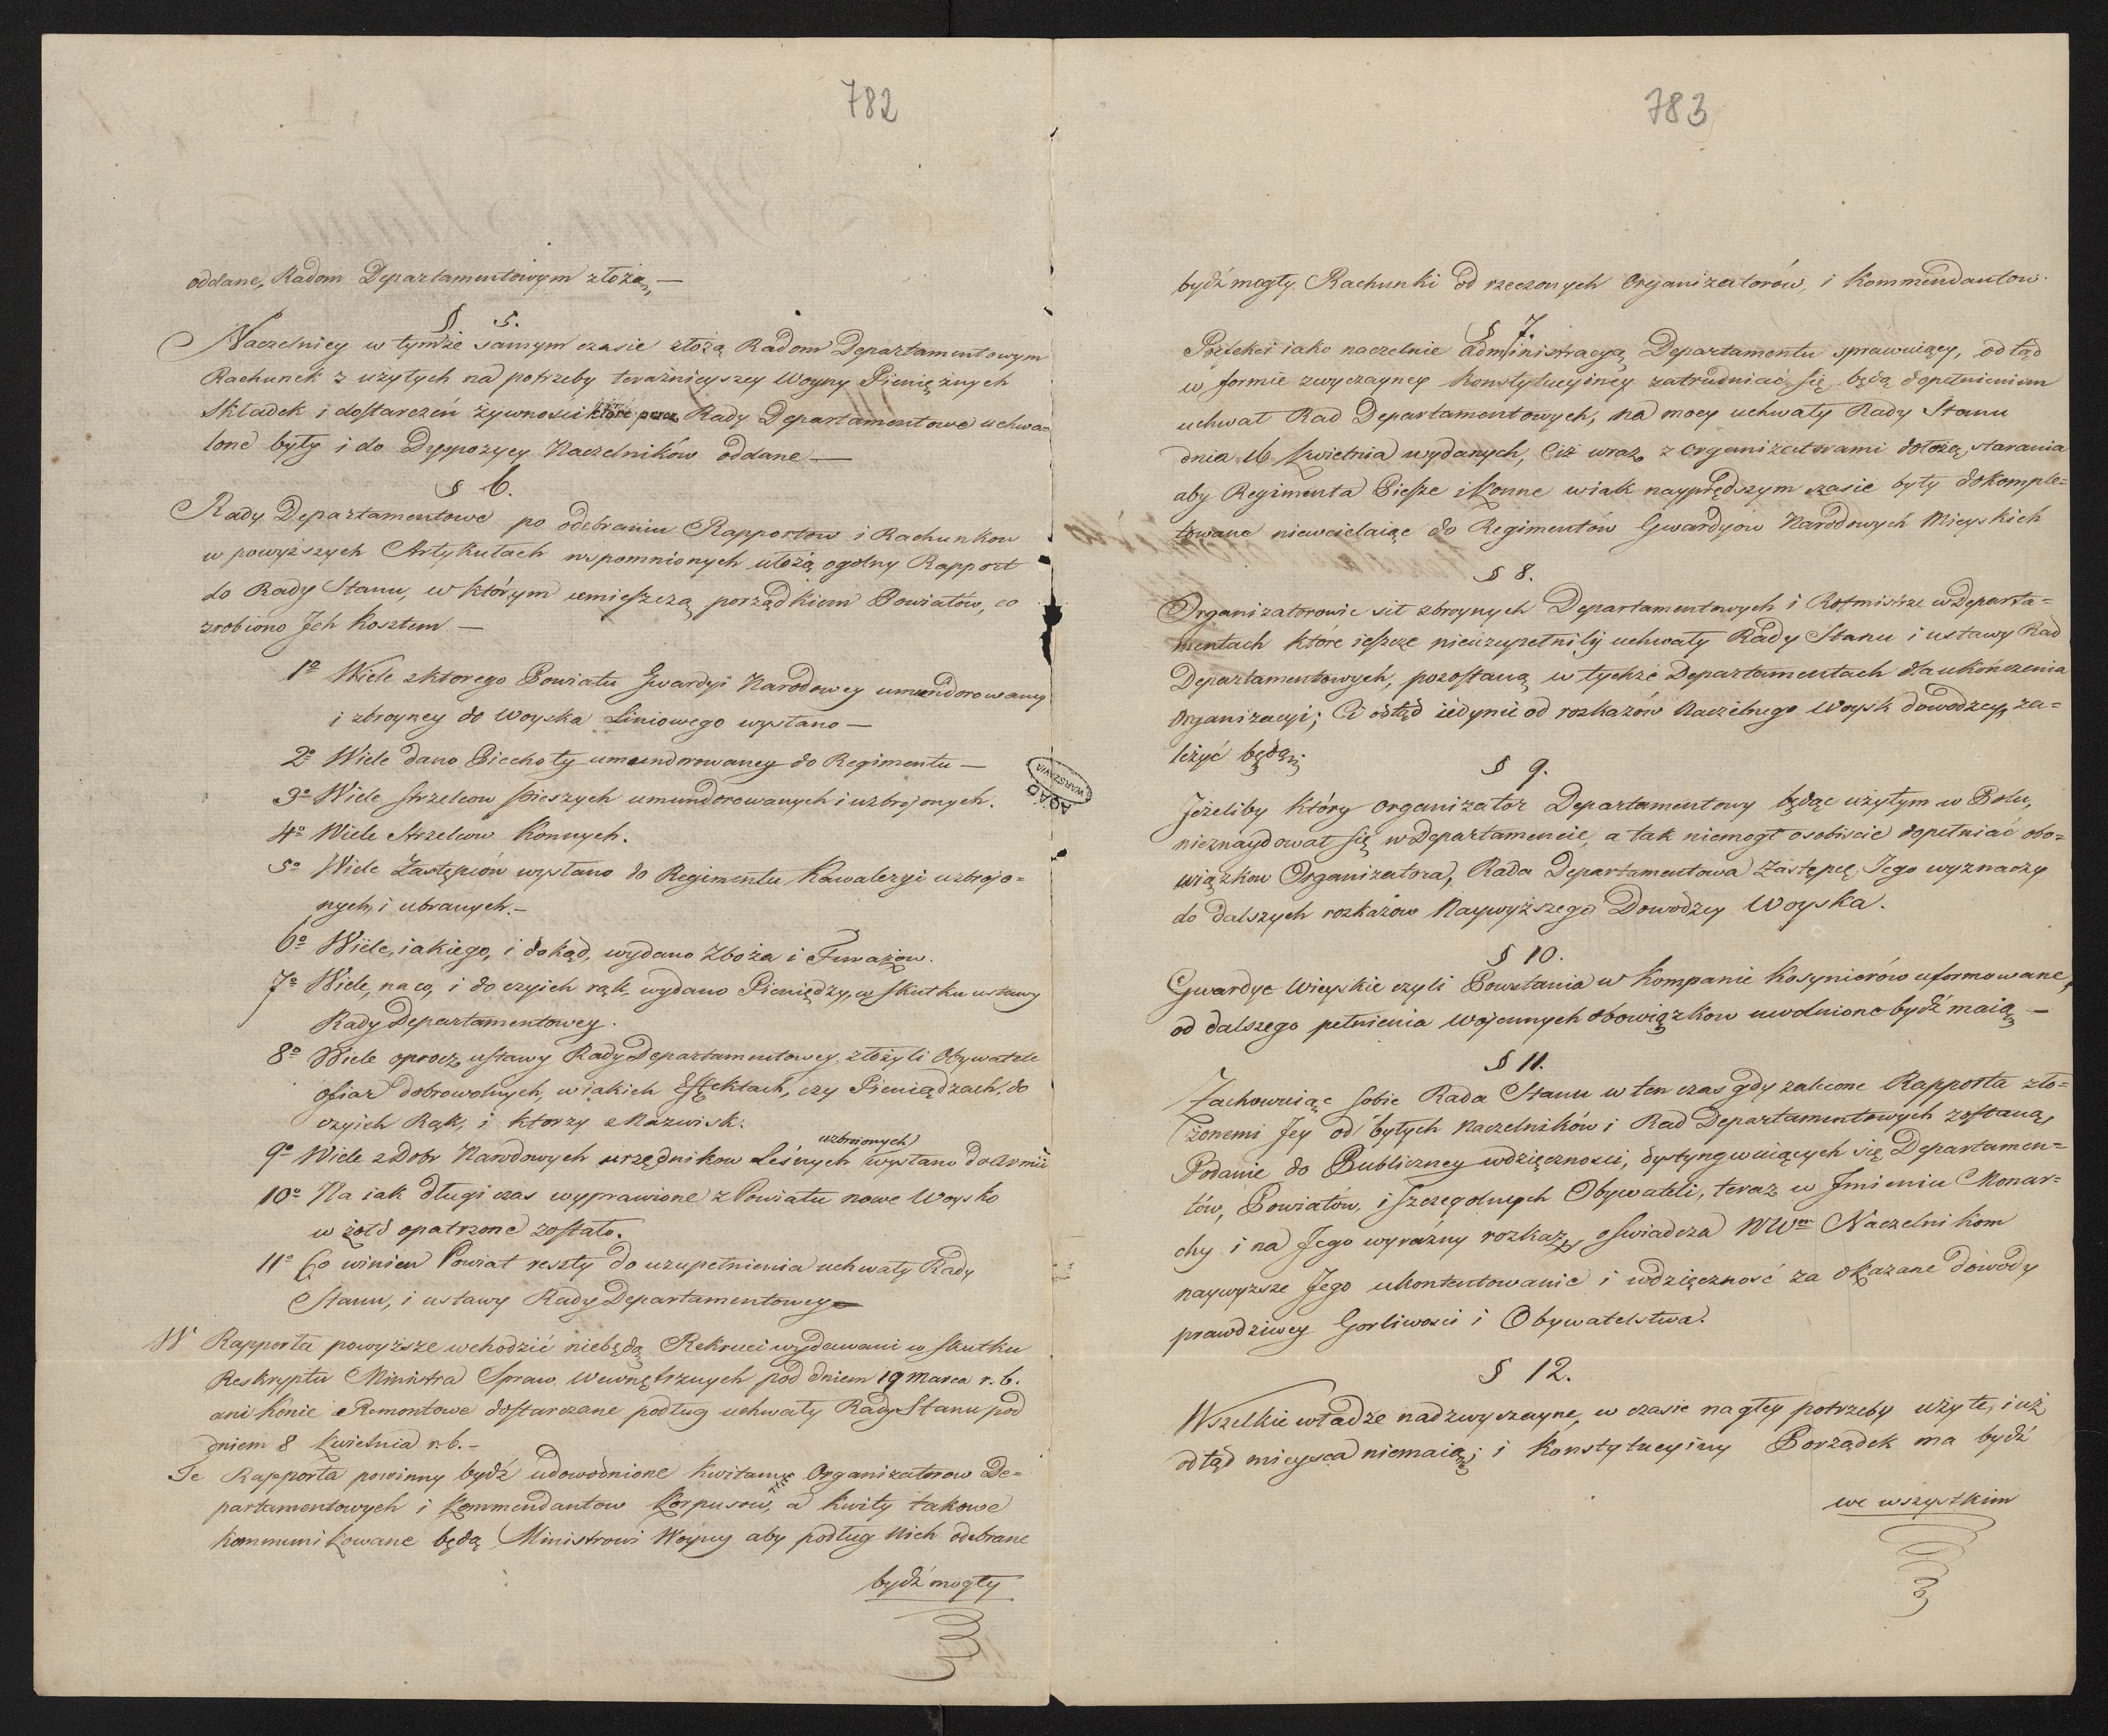 782
oddane, Radom Departamentowym złożą, —
§ 5.
Naczelnicy w tymże samym czasie złożą Radom Departamentowym
Rachunek z użytych na potrzeby teraźnieyszey Woyny Pieniężnych
Składek i dostarczeń żywności które przez Rady Departamentowe uchwa=
lone były i do Dyspozycy Naczelników oddane —
§ 6.
Rady Departamentowe po odebraniu Rapportow i Rachunkow
w powyższych Artykułach wspomnionych ułożą ogolny Rapport
do Rady Stanu, w którym umieszczą porządkiem Powiatów, co
zrobiono Jch Kosztem —
1º Wiele zktorego Powiatu Gwardyi Narodowey umundorowaney
i zbroyney do Woyska Liniowego wysłano —
2º Wiele dano Piechoty umundorowaney do Regimentu —
3º Wiele strzelcow pieszych umundorowanych i uzbrojonych.
4º Wiele Strzelcow Konnych.
5º Wiele Zastępców wysłano do Regimentu Kawaleryi uzbrojo=
nych, i ubranych. —
6º Wiele, iakiego, i dokąd, wydano Zboża i Furażow.
7º Wiele, na co, i do czyich rąk wydano Pieniędzy, w skutku ustawy
Rady Departamentowey.
8º Wiele oprocz ustawy Rady Departamentowey złożyli Obywatele
ofiar dobrowolnych, w iakich Effektach, czy Pieniądzach, do
czyich Rąk, i ktorzy z Nazwisk.
uzbroionych
9º Wiele z Dobr Narodowych urzędnikow Leśnych wysłano do Armii
10º Na iak długi czas wyprawione z Powiatu nowe Woysko
w żołd opatrzone zostało.
11º Co winien Powiat reszty do uzupełnienia uchwały Rady
Stanu, i ustawy Rady Departamentowey —
W Rapporta powyższe wchodzić niebędą Rekruci wydawani w skutku
Reskryptu Ministra Spraw Wewnętrznych pod dniem 19 Marca r. b.
ani Konie Remontowe dostarczane podług uchwały Rady Stanu pod
dniem 8 Kwietnia r. b. —
Te Rapporta powinny bydź udowodnione kwitami Organizatorow De=
partamentowych i Kommendantow Korpusow, a kwity takowe
kommunikowane będą Ministrowi Woyny aby podług Nich odebrane
bydź mogły
AGAD
WARSZAWA
783
bydź mogły Rachunki od rzeczonych Organizatorów, i Kommendantow.
§ 7.
Prefekci iako naczelnie administracyą Departamentu sprawuiący, odtąd
w formie zwyczayney Konstytucyiney zatrudniać się będą dopełnieniem
uchwał Rad Departamentowych, na mocy uchwały Rady Stanu
dnia 16 Kwietnia wydanych, Ciż wraz z Organizatorami dołożą starania
aby Regimenta Piesze i Konne w iak nayprędszym czasie były dokomple=
towane niewcielaiąc do Regimentów Gwardyów Narodowych Mieyskich
§ 8.
Organizatorowie sił zbroynych Departamentowych i Rotmistrze w Departa=
mentach które ieszcze nieuzupełniły uchwały Rady Stanu i ustawy Rad
Departamentowych, pozostaną w tychże Departamentach dla ukończenia
Organizacyi; Ci odtąd iedynie od rozkazów Naczelnego Woysk dowodzcy, za=
leżyć będą;
§ 9.
Jeżeliby który organizator Departamentowy będąc użytym w Polu,
nieznaydował się w Departamencie, a tak niemogł osobiście dopełniać obo=
wiązkow Organizatora, Rada Departamentowa Zastępcę Jego wyznaczy
do dalszych rozkazow Naywyższego Dowodzcy Woyska.
§ 10.
Gwardye Wieyskie czyli Powstania w Kompanie Kosynierów uformowane,
od dalszego pełnienia Wojennych obowiązkow uwolnione bydź maią —
§ 11.
Zachowuiąc sobie Rada Stanu w ten czas gdy zalecone Rapporta zło=
żonemi Jey od byłych Naczelników i Rad Departamentowych zostaną,
Podanie do Publiczney wdzięczności, dystyngwuiących się Departamen=
tów, Powiatów, i szczegolnych Obywateli, teraz w Jmieniu Monar=
chy i na Jego wyraźny rozkaz, oświadcza WWm Naczelnikom
naywyższe Jego ukontentowanie i wdzięczność za okazane dowody
prawdziwey Gorliwości i Obywatelstwa.
§ 12.
Wszelkie władze nadzwyczayne, w czasie nagłey potrzeby użyte, iuż
odtąd mieysca niemaią; i Konstytucyiny Porządek ma bydź
we wszystkim